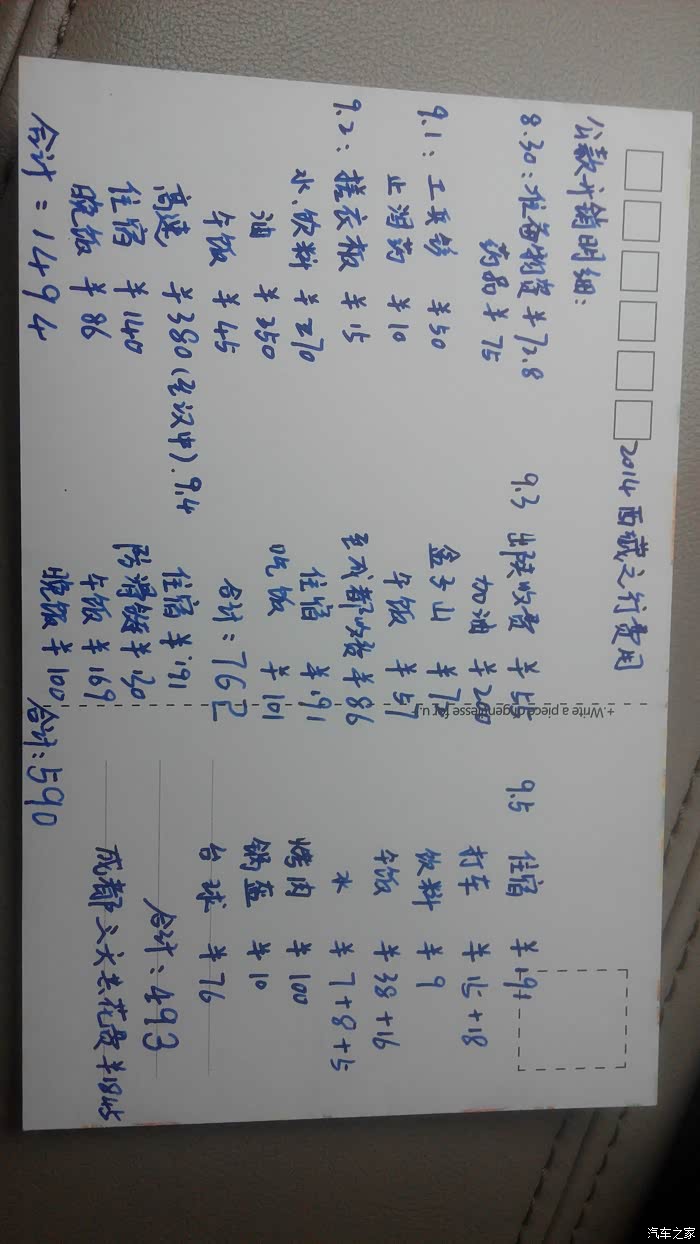 2014西藏之行费用
公款开销明细:
8.30:准备物资 ¥72.8
药品 ¥75
9.1:工兵铲 ¥50
止泻药 ¥10
9.2:搓衣板 ¥15
水、饮料 ¥270
油 ¥350
午饭 ¥45
高速 ¥380(至汉中).
住宿 ¥140
晚饭 ¥86
合计:1494
9.3 出陕收费
加油 ¥200
¥7
午饭 ¥57
至成都收费 ¥86
住宿 ¥191
吃饭 ¥101
合计:762
9.4
住宿 ¥191
防滑链 ¥130
午饭 ¥169
晚饭 ¥100
合计:590
9.5 住宿 ¥191
打车 ¥15+18
饮料 ¥9
午饭 ¥38+16
水 ¥7+8+5
烤肉 ¥100
锅盔 ¥10
台球 ¥76
合计:493
成都三天共花费¥1845
+.Write a piece of
for u.
汽车之家